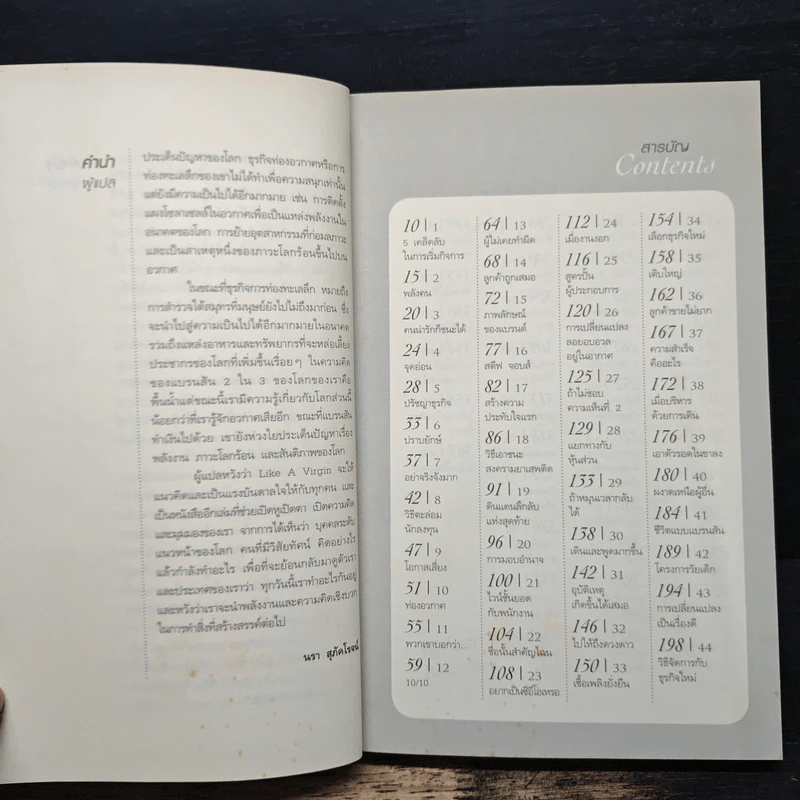 คำนำ
ผู้แปล
ประเด็นปัญหาของโลก ธุรกิจท่องอวกาศหรือการ
ท่องทะเลลึกของเขาไม่ได้ทำเพื่อความสนุกเท่านั้น
แต่ยังมีความเป็นไปได้อีกมากมาย เช่น การติดตั้ง
แผงโซลาเซลล์ในอวกาศเพื่อเป็นแหล่งพลังงานใน
อนาคตของโลก การย้ายอุตสาหกรรมที่ก่อมลภาวะ
และเป็นสาเหตุหนึ่งของภาวะโลกร้อนขึ้นไปบน
อวกาศ
ในขณะที่ธุรกิจการท่องทะเลลึก หมายถึง
การสำรวจใต้สมุทรที่มนุษย์ยังไปไม่ถึงมาก่อน ซึ่ง
จะนำไปสู่ความเป็นไปได้อีกมากมายในอนาคต
รวมถึงแหล่งอาหารและทรัพยากรที่จะหล่อเลี้ยง
ประชากรของโลกที่เพิ่มขึ้นเรื่อยๆ ในความคิด
ของแบรนสัน 2 ใน 3 ของโลกของเราคือ
พื้นน้ำแต่ขณะนี้เรามีความรู้เกี่ยวกับโลกส่วนนี้
น้อยกว่าที่เรารู้จักอวกาศเสียอีก ขณะที่แบรนสัน
ทำเงินไปด้วย เขายังห่วงใยประเด็นปัญหาเรื่อง
พลังงาน ภาวะโลกร้อน และสันติภาพของโลก
ผู้แปลหวังว่า Like A Virgin จะให้
แนวคิดและเป็นแรงบันดาลใจให้กับทุกคน และ
เป็นหนังสืออีกเล่มที่ช่วยเปิดหูเปิดตา เปิดความคิด
และมุมมองของเรา จากการได้เห็นว่า บุคคลระดับ
แนวหน้าของโลก คนที่มีวิสัยทัศน์ คิดอย่างไร
แล้วกำลังทำอะไร เพื่อที่จะย้อนกลับมาดูตัวเรา
และประเทศของเราว่า ทุกวันนี้เราทำอะไรกันอยู่
และหวังว่าเราจะนำพลังงานและความคิดเชิงบวก
ในการทำสิ่งที่สร้างสรรค์ต่อไป
นรา สุภัคโรจน์
สารบัญ
Contents
10 | 1
5 เคล็ดลับ
ในการเริ่มกิจการ
15 | 2
พลังคน
20 | 3
คนน่ารักก็ชนะได้
24 | 4
จุดอ่อน
28 | 5
ปรัชญาธุรกิจ
33 | 6
ปราบยักษ์
37 | 7
อย่าจริงจังมาก
42 | 8
วิธีตะล่อม
นักลงทุน
47 | 9
โอกาสเสี่ยง
51 | 10
ท่องอวกาศ
55 | 11
พวกเขาบอกว่า...
59 | 12
10/10
64 | 13
ผู้ไม่เคยทำผิด
68 | 14
ลูกค้าถูกเสมอ
72 | 15
ภาพลักษณ์
ของแบรนด์
77 | 16
สตีฟ จอบส์
82 | 17
สร้างความ
ประทับใจแรก
86 | 18
วิธีเอาชนะ
สงครามยาเสพติด
91 | 19
ดินแดนลี้ลับ
แห่งสุดท้าย
96 | 20
การมอบอำนาจ
100 | 21
ไวน์ชั้นยอด
กับพนักงาน
104 | 22
ชื่อนั้นสำคัญไฉน
108 | 23
อยากเป็นซีอีโอเหรอ
112 | 24
เมื่องานงอก
116 | 25
สูตรปั้น
ผู้ประกอบการ
120 | 26
การเปลี่ยนแปลง
ลอยอบอวล
อยู่ในอากาศ
125 | 27
ถ้าไม่ชอบ
ความเห็นที่ 2
129 | 28
แยกทางกับ
หุ้นส่วน
133 | 29
ถ้าหมุนเวลากลับ
ได้
138 | 30
เดินและพูดมากขึ้น
142 | 31
อุบัติเหตุ
เกิดขึ้นได้เสมอ
146 | 32
ไปให้ถึงดวงดาว
150 | 33
เชื้อเพลิงยั่งยืน
154 | 34
เลือกธุรกิจใหม่
158 | 35
เติบใหญ่
162 | 36
ลูกค้าขายไม่ยาก
167 | 37
ความสำเร็จ
คืออะไร
172 | 38
เมื่อบริหาร
ด้วยการเดิน
176 | 39
เอาตัวรอดในขาลง
180 | 40
ผงาดเหนือผู้อื่น
184 | 41
ชีวิตแบบแบรนสัน
189 | 42
โครงการวัยเด็ก
194 | 43
การเปลี่ยนแปลง
เป็นเรื่องดี
198 | 44
วิธีจัดการกับ
ธุรกิจใหม่